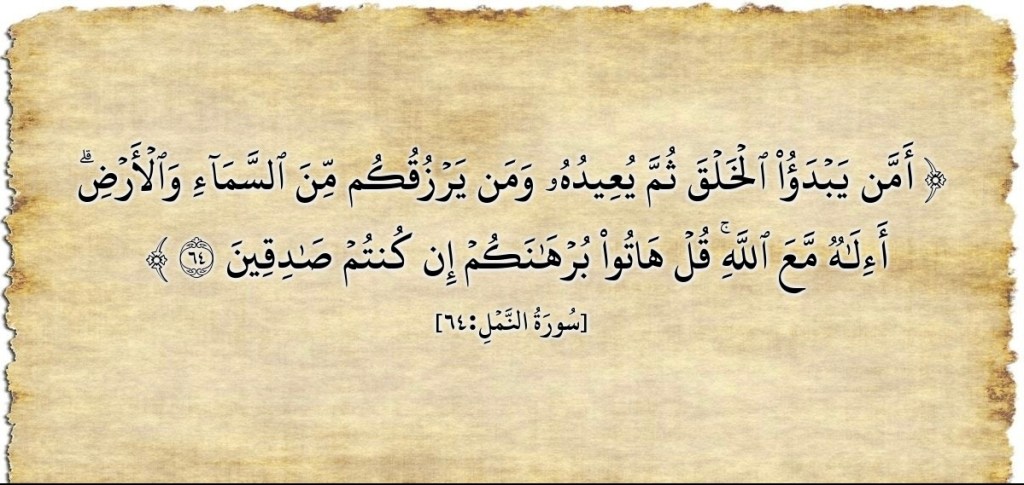 ﴿ أَمَّن يَبۡدَؤُاْ ٱلۡخَلۡقَ ثُمَّ يُعِيدُهُۥ وَمَن يَرۡزُقُكُم مِّنَ ٱلسَّمَآءِ وَٱلۡأَرۡضِۗ
أَءِلَٰهٞ مَّعَ ٱللَّهِۚ قُلۡ هَاتُواْ بُرۡهَٰنَكُمۡ إِن كُنتُمۡ صَٰدِقِينَ ٦٤ ﴾
[سُورَةُ النَّمۡلِ:٦٤]